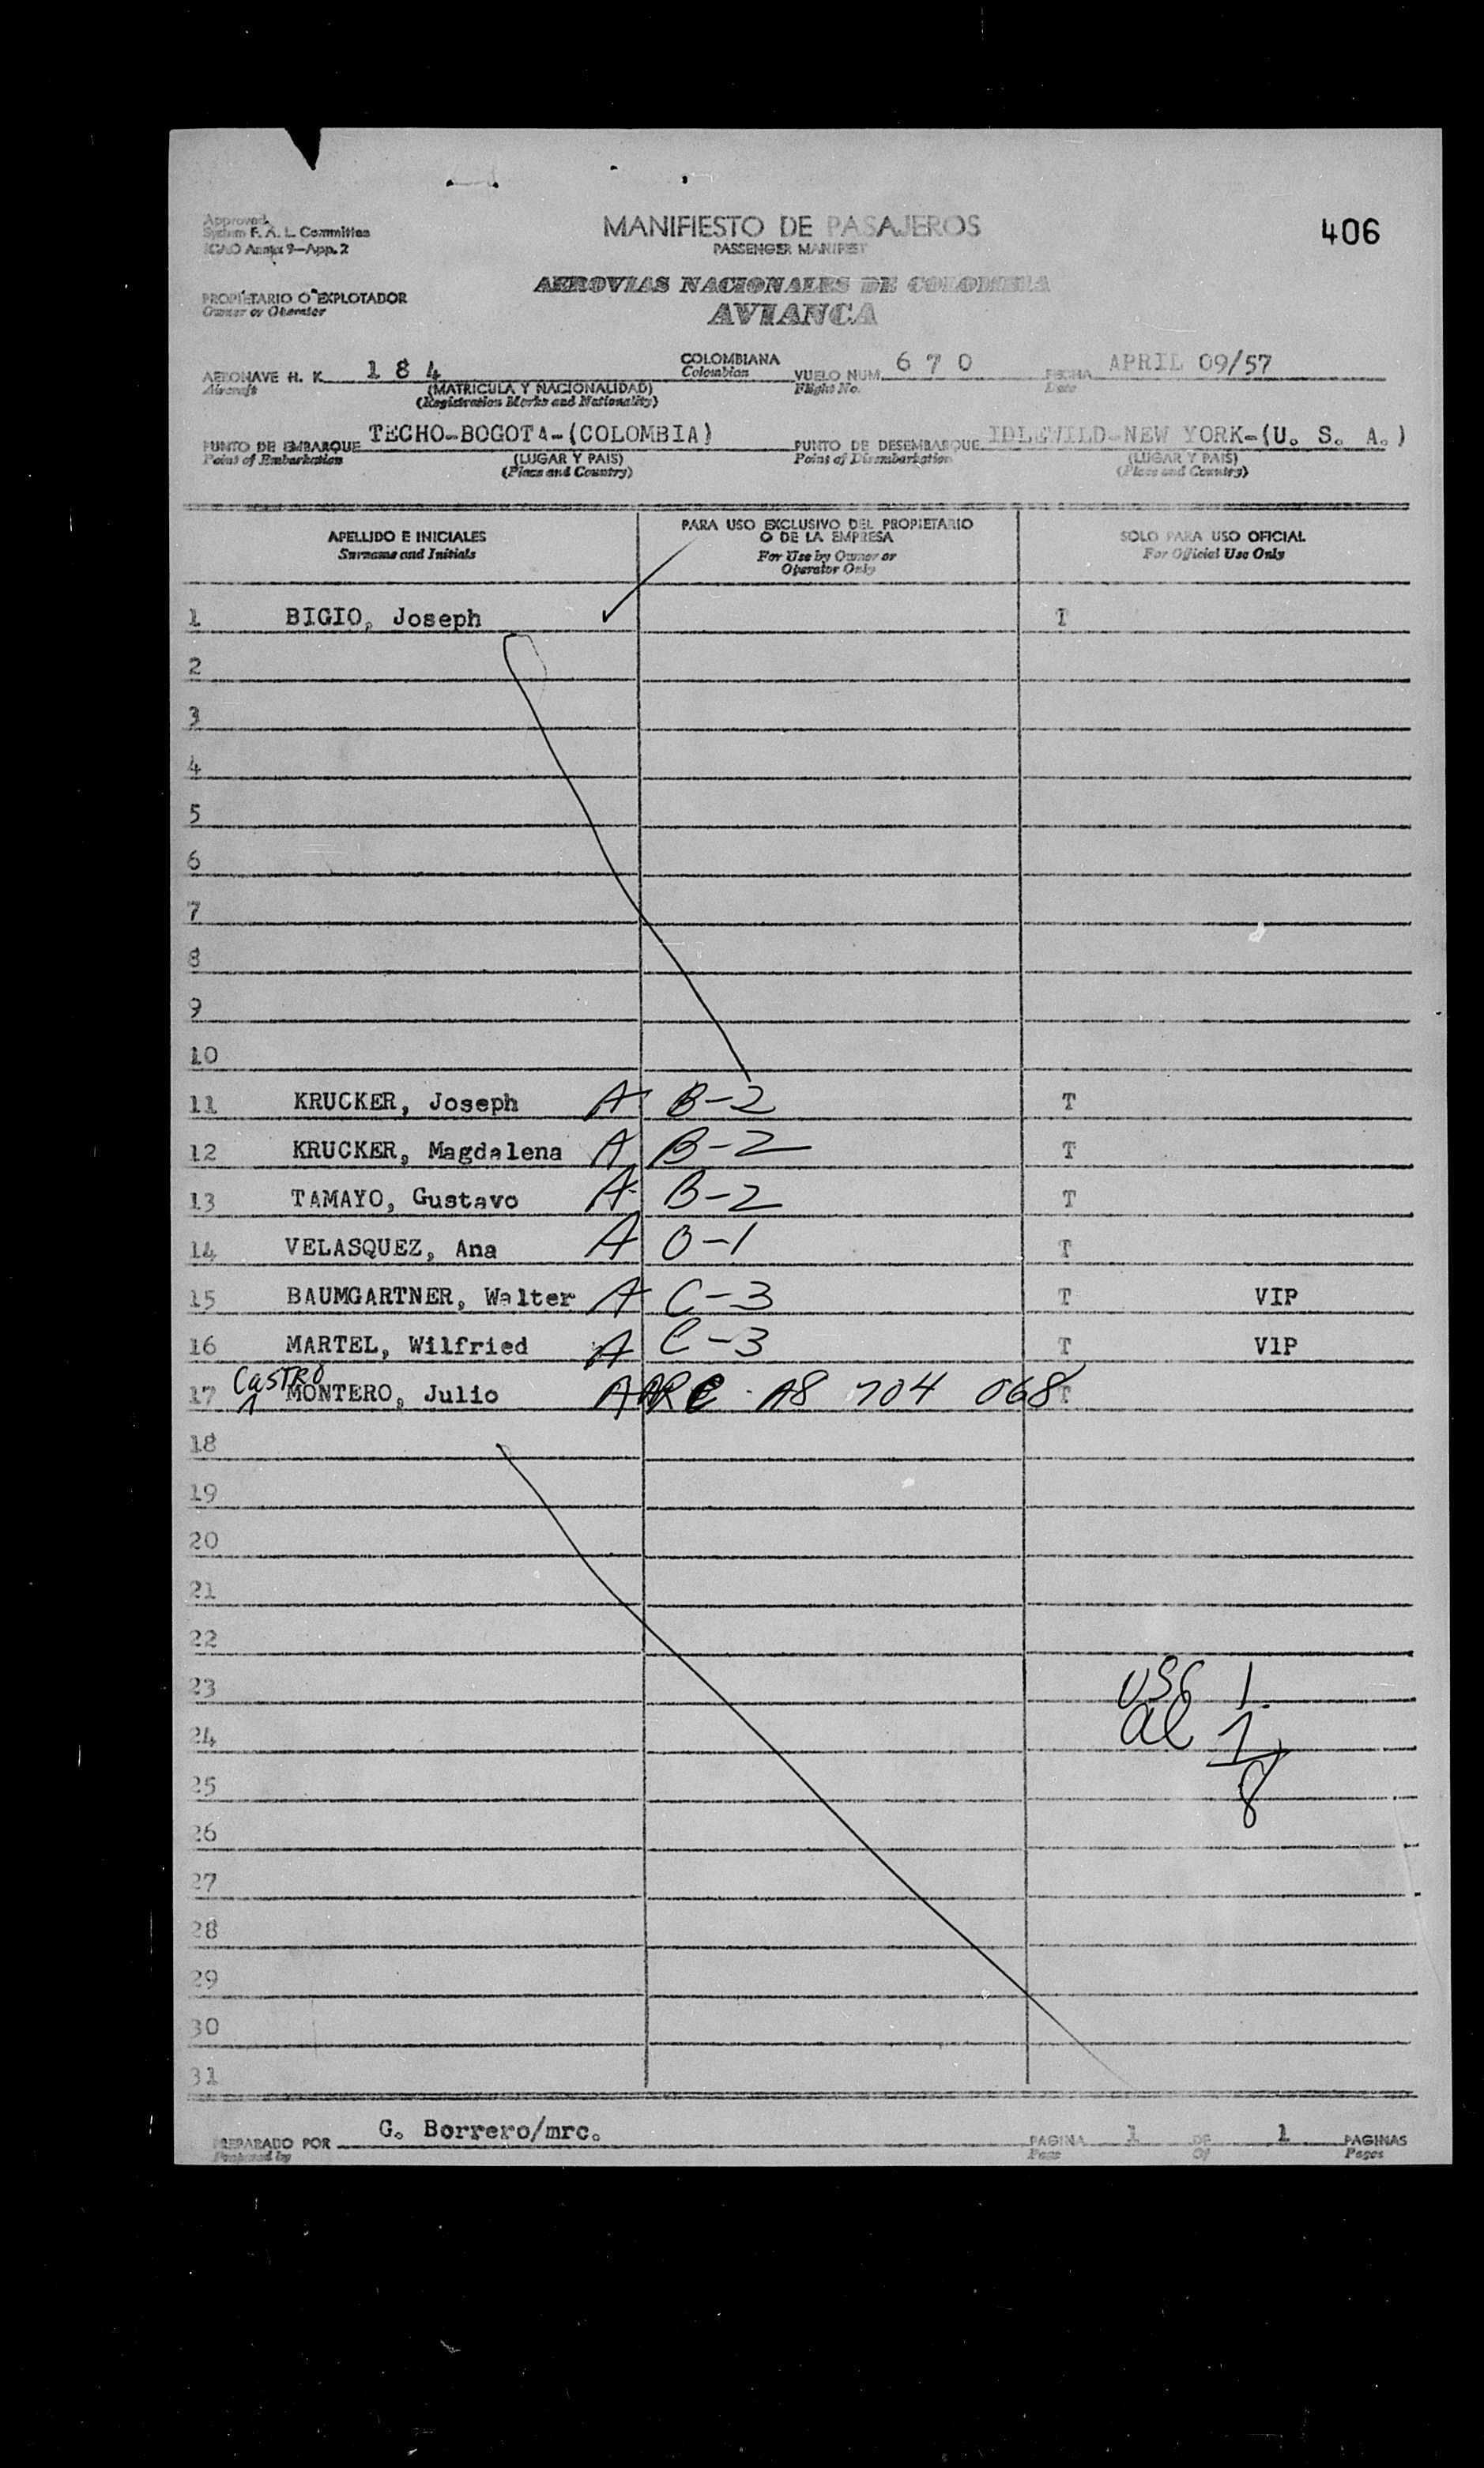 Approved
System F. A. L. Committee
ICAO Annex 9—App. 2
MANIFIESTO DE PASAJEROS
PASSENGER MANIFEST
406
PROPIETARIO O EXPLOTADOR
Owner or Operator
AEROVIAS NACIONALES DE COLOMBIA
AVIANCA
AERONAVE H. K. 1 8 4 COLOMBIANA VUELO NUM. 6 7 0 FECHA APRIL 09/57
Aircraft (MATRICULA Y NACIONALIDAD) Colombian Flight No. Date
(Registration Marks and Nationality)
PUNTO DE EMBARQUE TECHO-BOGOTA-(COLOMBIA) PUNTO DE DESEMBARQUE IDLEWILD-NEW YORK-(U. S. A.)
Point of Embarkation (LUGAR Y PAIS) Point of Disembarkation (LUGAR Y PAIS)
(Place and Country) (Place and Country)
APELLIDO E INICIALES PARA USO EXCLUSIVO DEL PROPIETARIO SOLO PARA USO OFICIAL
Surname and Initials O DE LA EMPRESA For Official Use Only
For Use by Owner or
Operator Only
1 BIGIO, Joseph T
2
3
4
5
6
7
8
9
10
11 KRUCKER, Joseph A B-2 T
12 KRUCKER, Magdalena A B-2 T
13 TAMAYO, Gustavo A B-2 T
14 VELASQUEZ, Ana A O-1 T
15 BAUMGARTNER, Walter A C-3 T VIP
16 MARTEL, Wilfried A C-3 T VIP
17 CASTRO MONTERO, Julio A ARC A8 704 068 T
18
19
20
21
22
23 USC 1
24 al 7
25 8
26
27
28
29
30
31
PREPARADO POR G. Borrero/mrc. PAGINA 1 DE 1 PAGINAS
Prepared by Page Of Pages